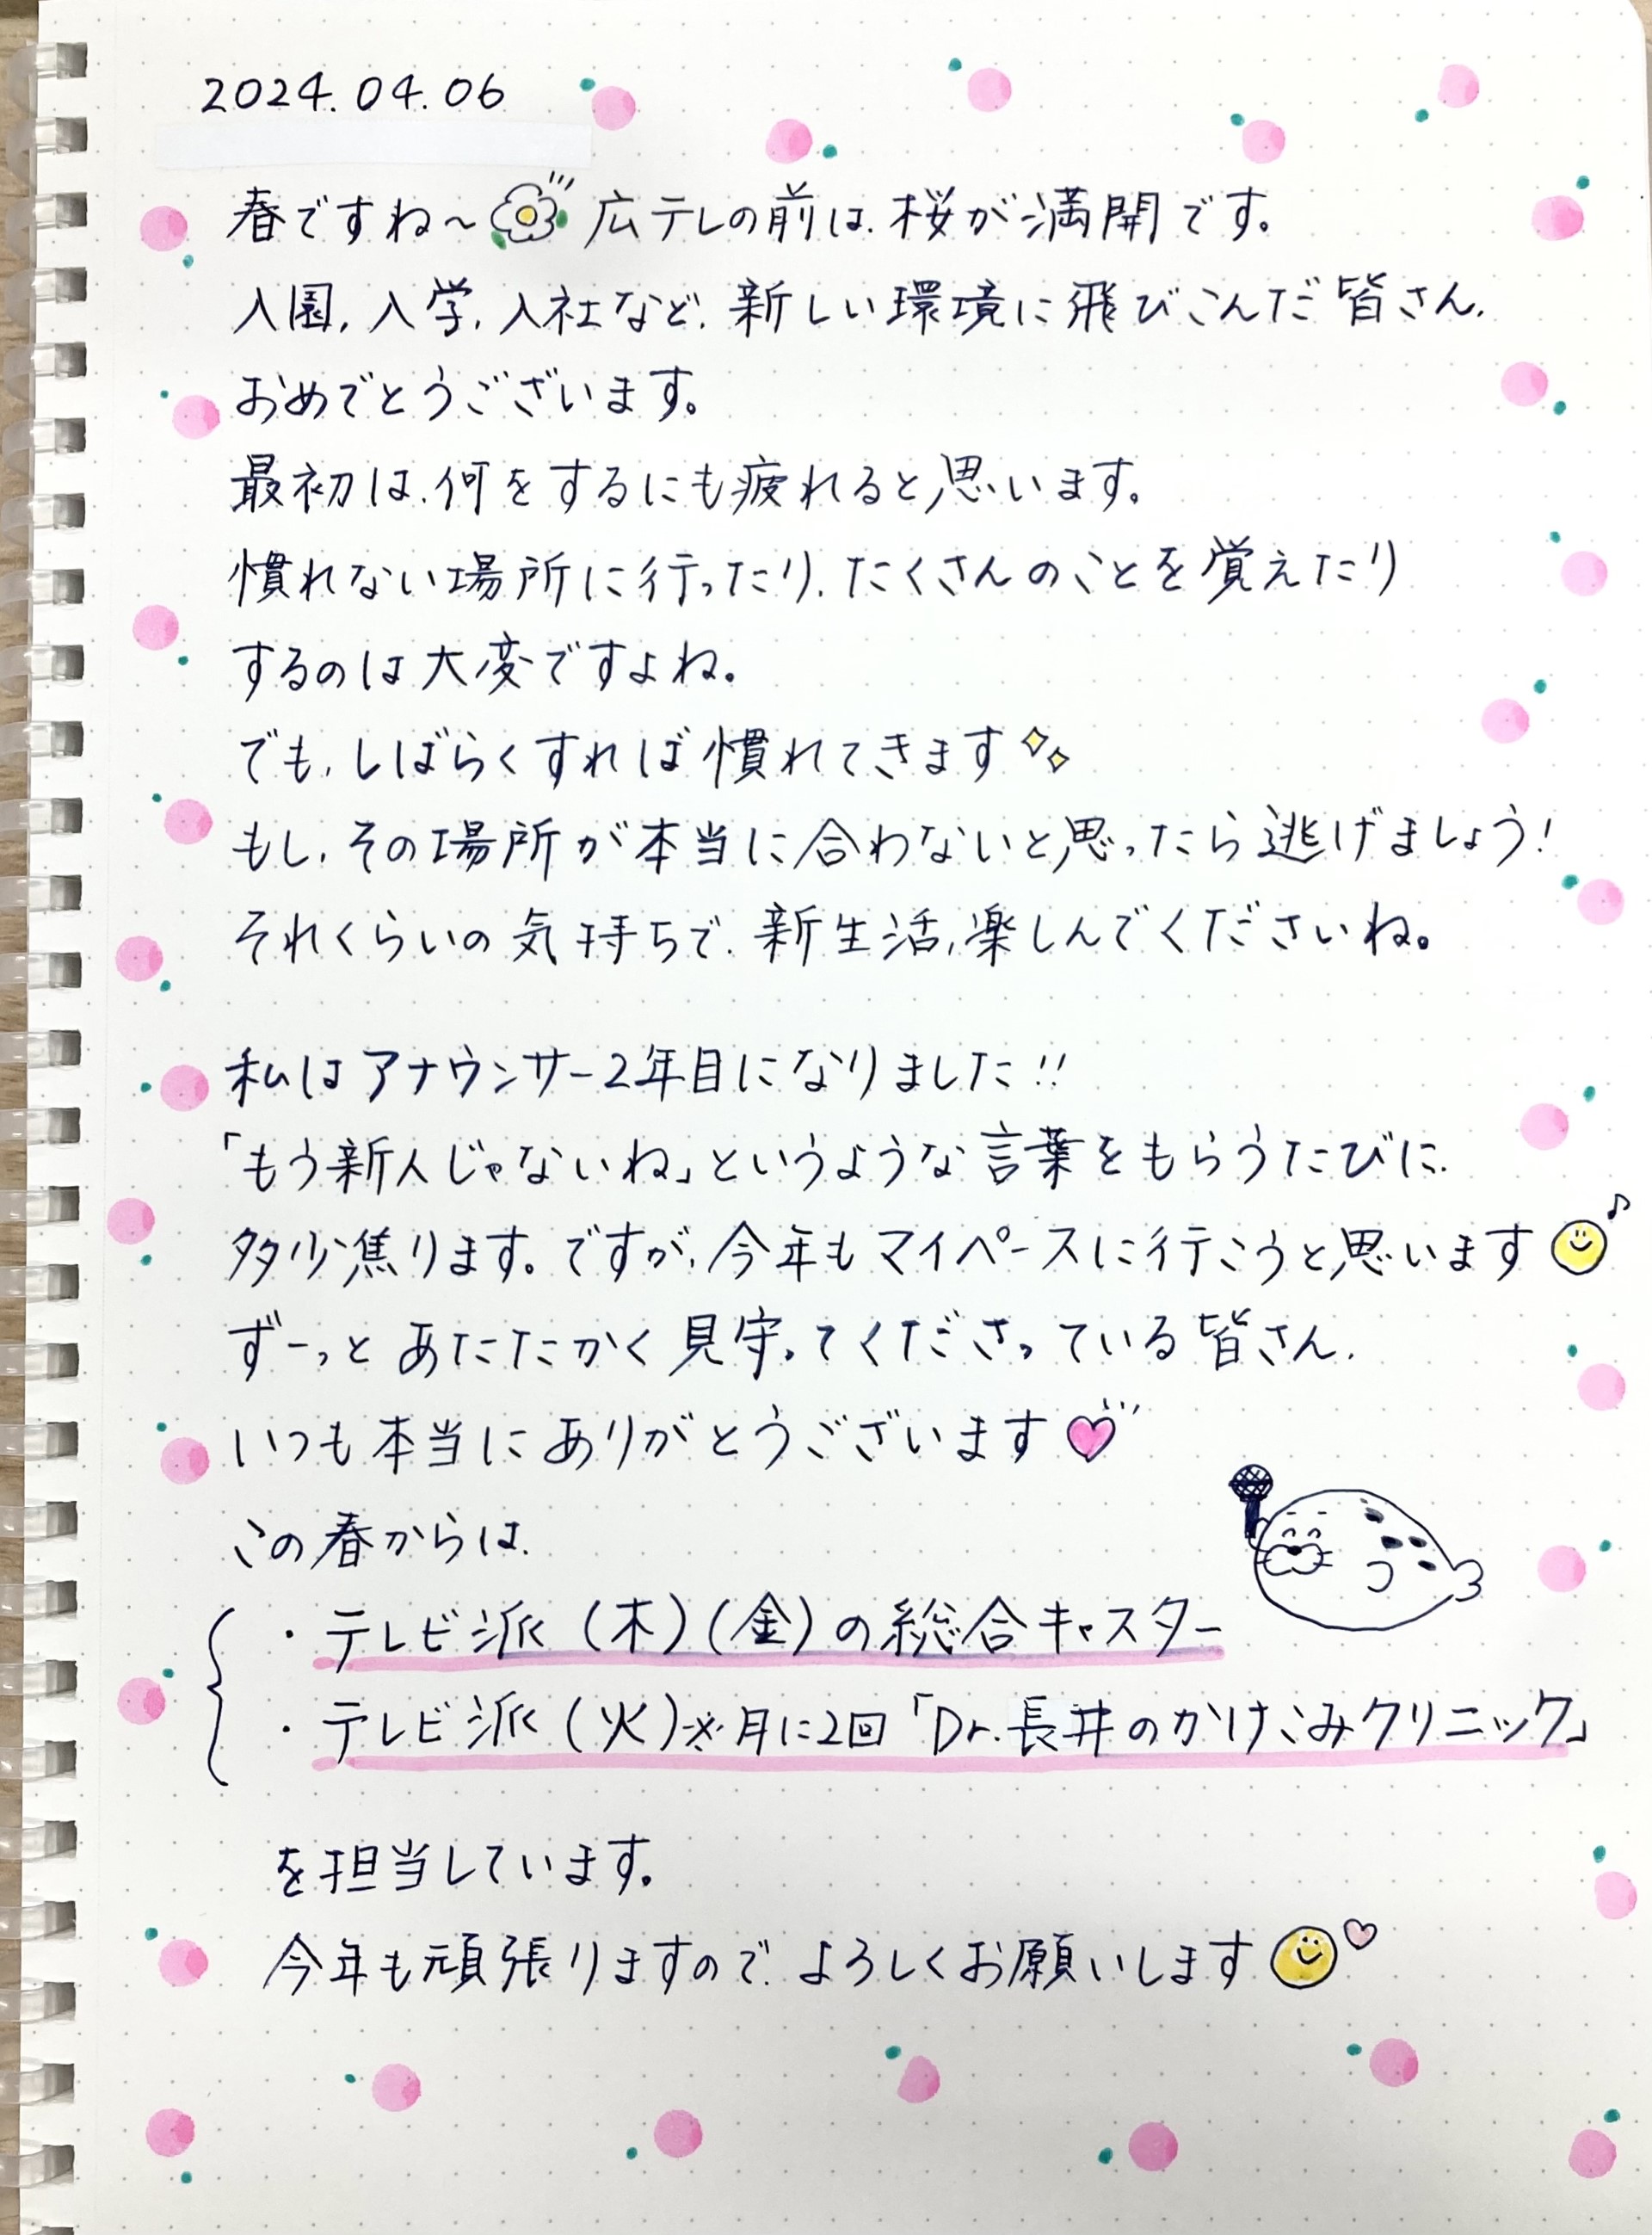 2024.04.06
春ですね〜 広テレの前は、桜が満開です。
入園、入学、入社など、新しい環境に飛びこんだ皆さん、
おめでとうございます。
最初は、何をするにも疲れると思います。
慣れない場所に行ったり、たくさんのことを覚えたり
するのは大変ですよね。
でも、しばらくすれば慣れてきます
もし、その場所が本当に合わないと思ったら逃げましょう!
それくらいの気持ちで、新生活、楽しんでくださいね。
私はアナウンサー2年目になりました!!
「もう新人じゃないね」というような言葉をもらうたびに、
多少焦ります。ですが、今年もマイペースに行こうと思います
ずーっとあたたかく見守ってくださっている皆さん、
いつも本当にありがとうございます
この春からは、
・テレビ派(木)(金)の総合キャスター
・テレビ派(火)※月に2回「Dr.長井のかけこみクリニック」
を担当しています。
今年も頑張りますので、よろしくお願いします